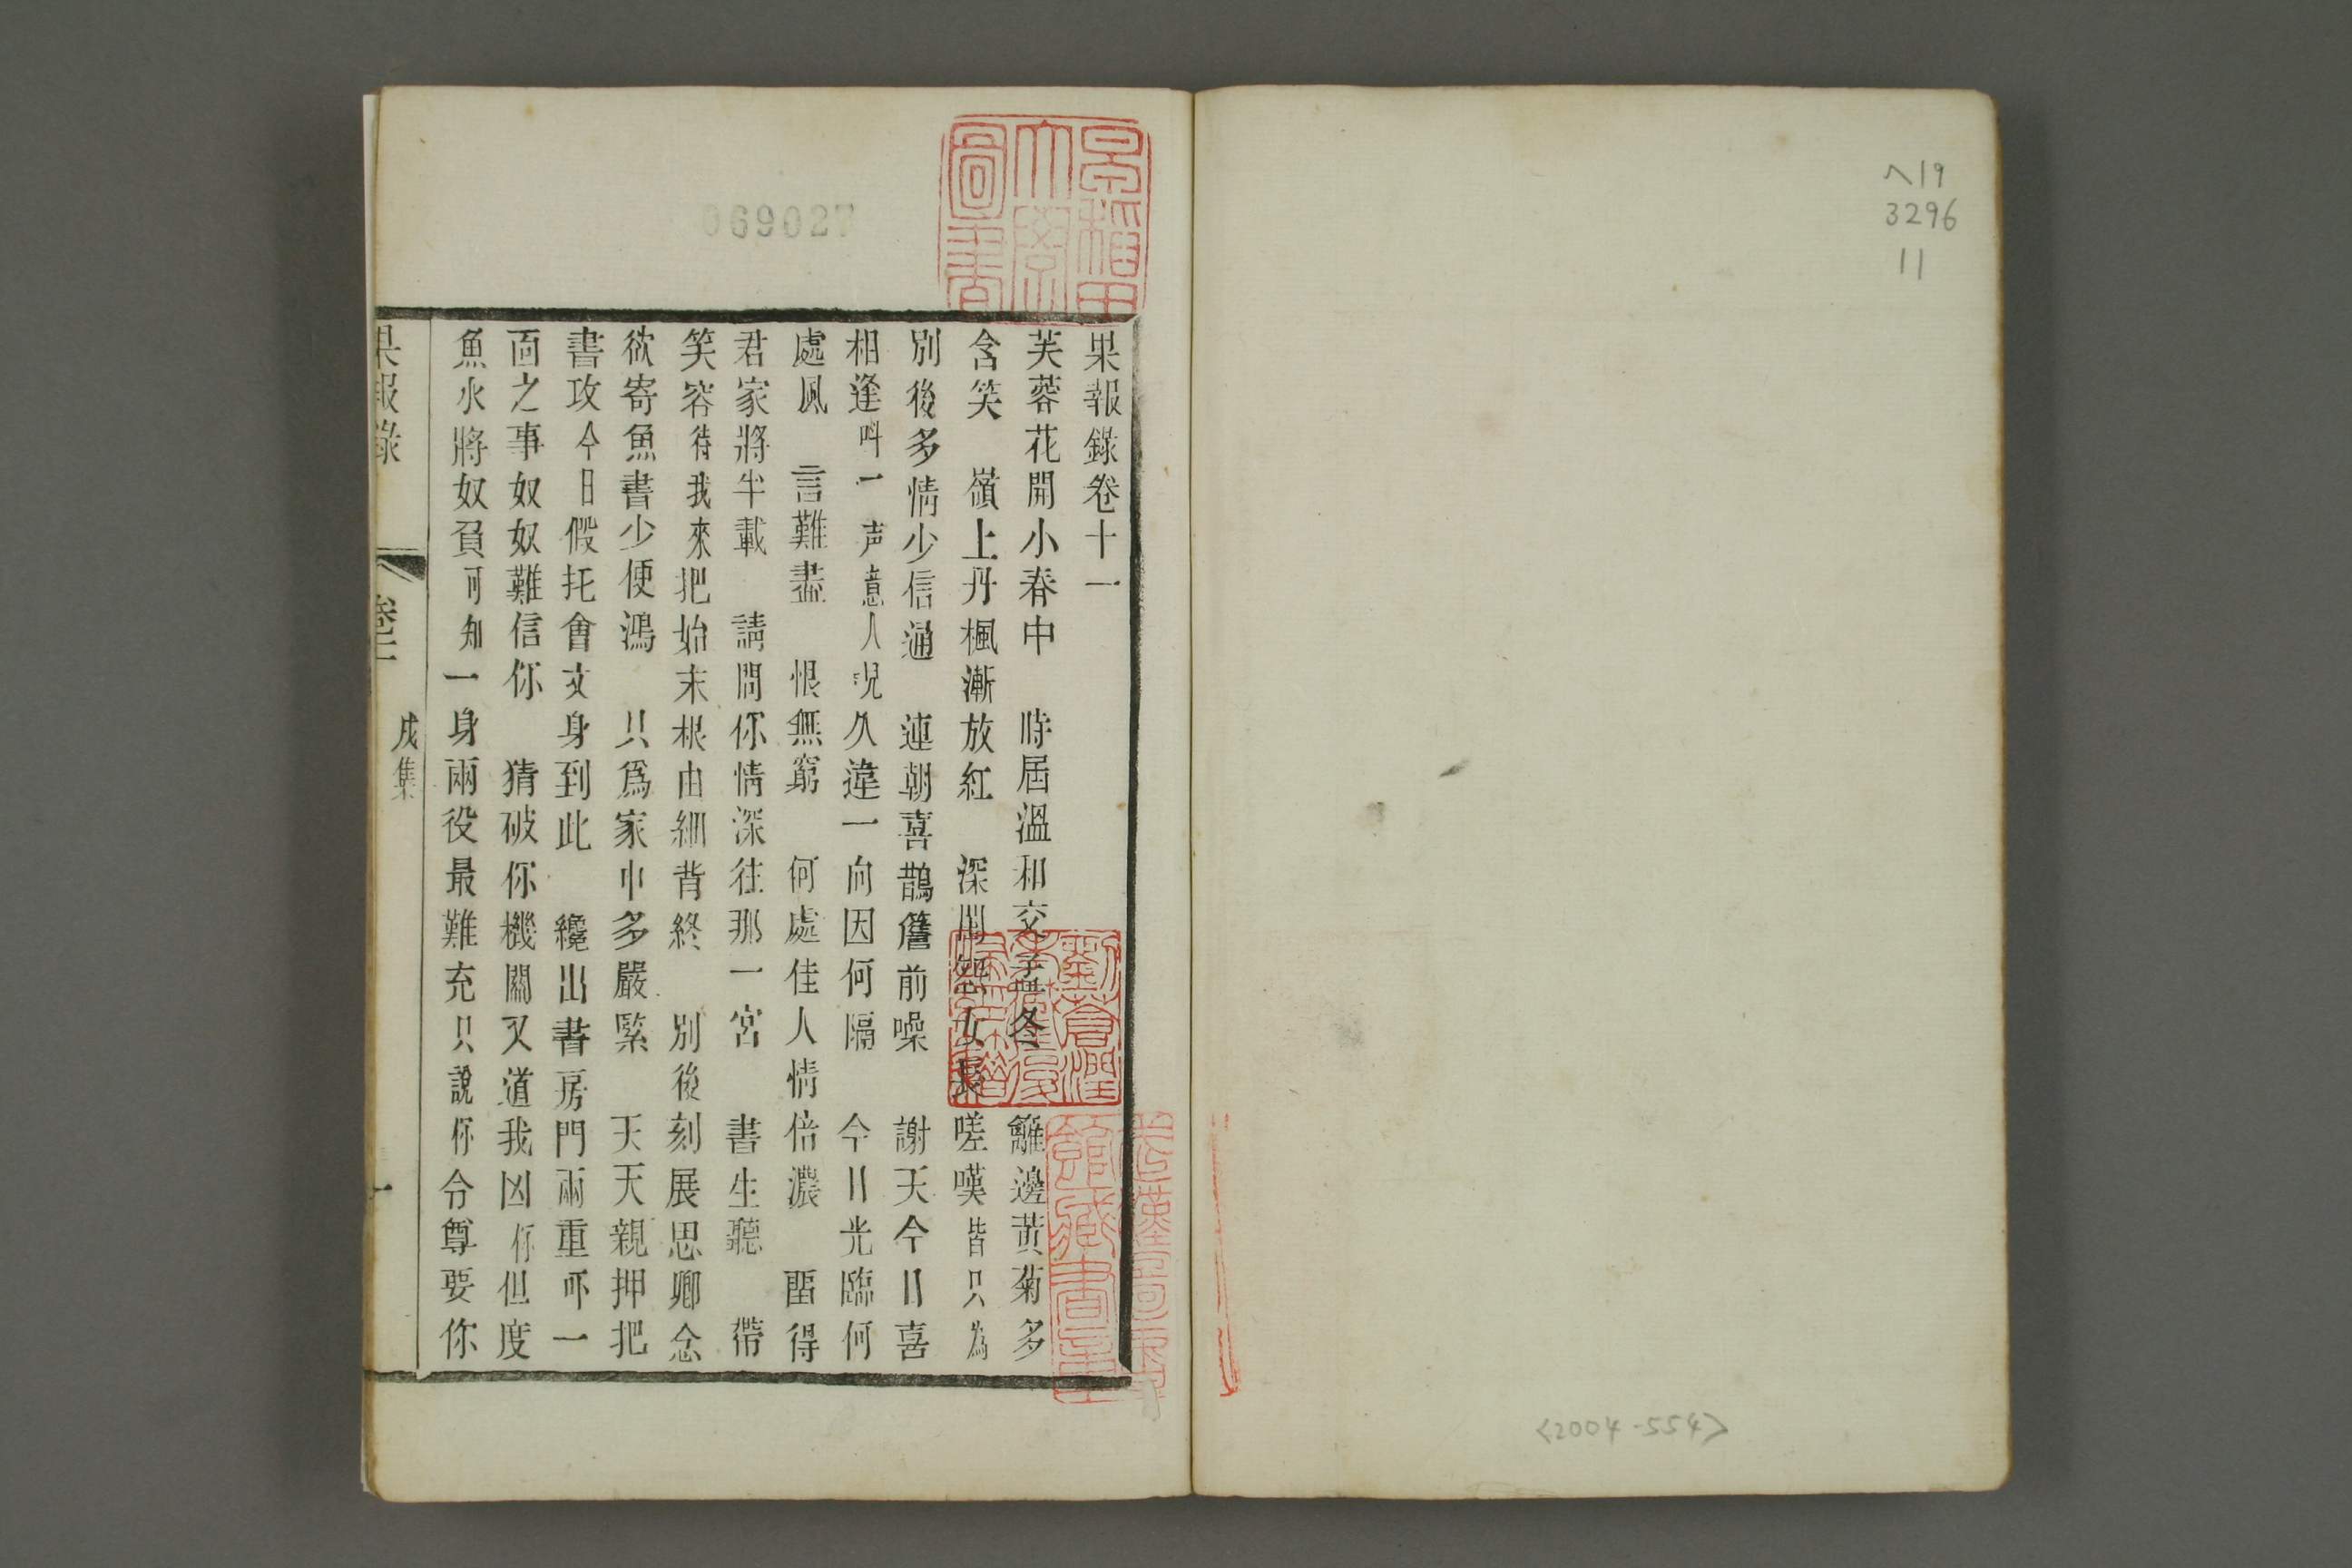 ヘ19
3296
11
<2004-554>
069027
果報錄卷十一
芙蓉花開小春中　時居溫和交孟冬　籬邊黃菊多
含笑　嶺上丹楓漸放紅　深閨怨女長嗟嘆皆只為
別後多情少信通　連朝喜鵲簷前噪　謝天今日喜
相逢叫一声意人呪久違一向因何隔　今日光臨何
處風　言難盡　恨無窮　何處佳人情倍濃　畱得
君家將半載　請問你情深往那一宮　書生聽　帶
笑容待我來把始末根由細背終　別後刻展思卿念
欲寄魚書少便鴻　只爲家中多嚴緊　天天親押把
書攻今日假托會文身到此　纔出書房門兩重吓一
面之事奴奴難信你　猜破你機關又道我凶你但度
魚水將奴負可知一身兩役最難充只說你令尊要你
果報錄　卷十一　戌集　一
早稻田大學圖書